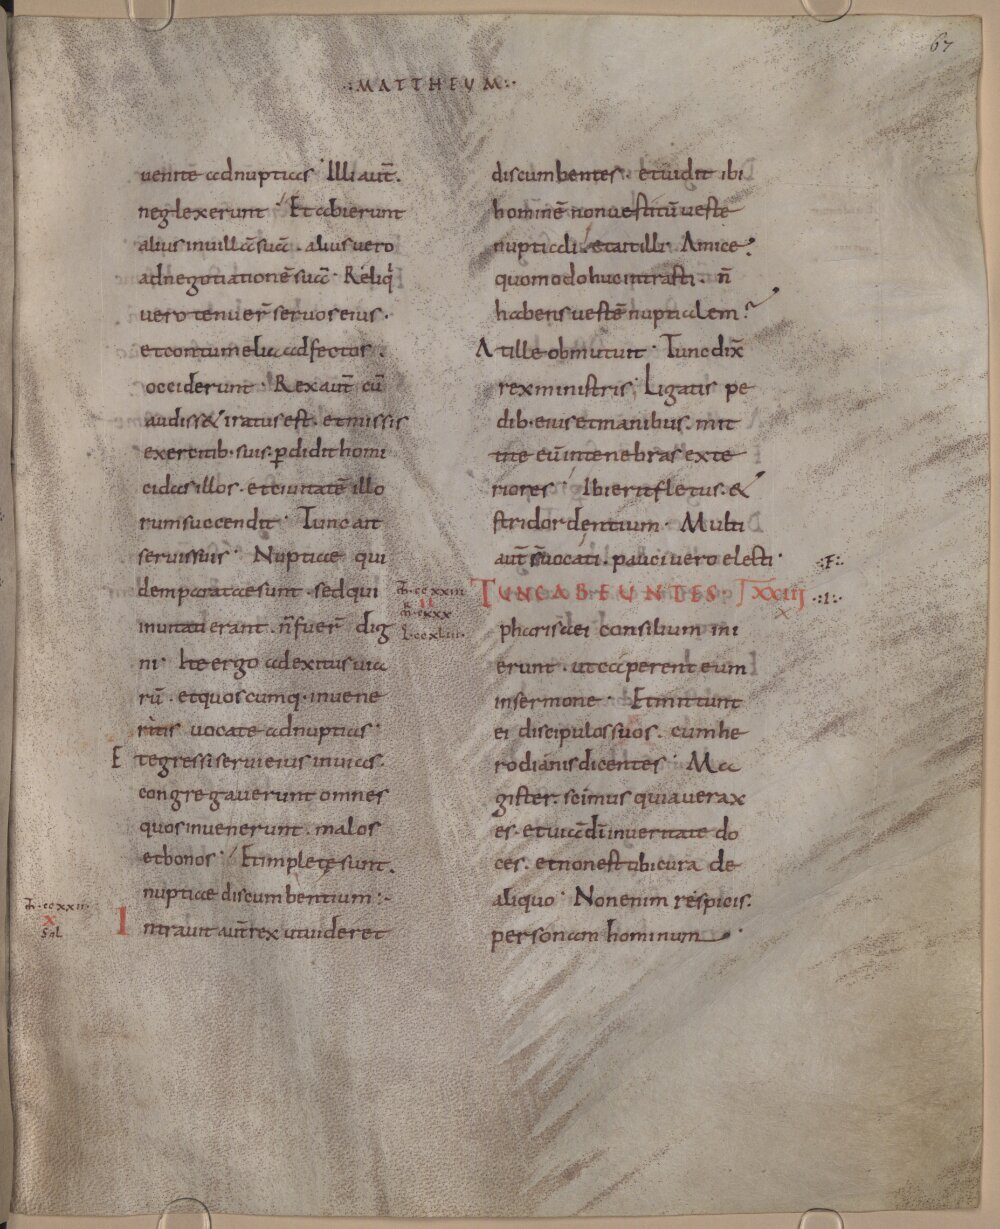 67
·:MATTHEUM:·
uenite adnuptias· Illi aut̄.
neglexerunt· Et abierunt
alius inuillā suā. alius uero
adnegotiationē suā· Reliq
uero tenuer̄ seruos eius.
et contumelia adfectos.
occiderunt· Rex aut̄ cū
audiss& iratus est. et missis
exercitib· suis. p̱didit homi
cidas illos. et ciuitatē illo
rum succendit· Tunc ait
seruis suis· Nuptiae qui
dem paratae sunt. sed qui
inuitati erant. n̄ fuer̄ dig
ni· Ite ergo ad exitus uia
rū. et quoscumq· inuene
ritis uocate ad nuptias·
Et egressi serui eius in uias.
congregauerunt omnes
quos inuenerunt. malos
et bonos· Et implete sunt.
nuptiae discumbentium:·
m̄·ccxxii·
x
sol
Intrauit aut̄ rex ut uideret
discumbentes. et uidit ibi
hominē non uestitū ueste
nuptiali. et ait illi. Amice?
quomodo huc intrasti. n̄
habens uestē nuptialem?
At ille obmutuit· Tunc dix̄
rex ministris; Ligatis pe
dib· eius et manibus. mit
tite eū in tenebras exte
riores· Ibi erit fletus. &
stridor dentium· Multi
aut̄ s̄ uocati. pauci uero electi· ·:F:·
m̄·ccxxiii
ii
m̄·cxxx
L·ccxliii·
TUNC ABEUNTES· LXXIII ·:I:·
pharisaei consilium ini
erunt. ut caperent eum
in sermone· Et mittunt
ei discipulos suos. cum he
rodianis dicentes· Ma
gister. scimus quia uerax
es. et uiā dī in ueritate do
ces. et non est tibi cura de
aliquo· Non enim respicis.
personam hominum·